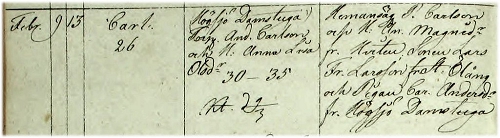 Febr. 9 13 Carl.
26
Högsjö Damstuga
Torp. And. Carlson
och H. Anna Lisa
Olsdr
30 – 35
Hemansäg P. Carlson
och H. An. Magnedr
fr. Lars
Fr. Larsson fr. St. Ölång
och Pigan Car. Andersdr
fr. Högsjö Damstuga